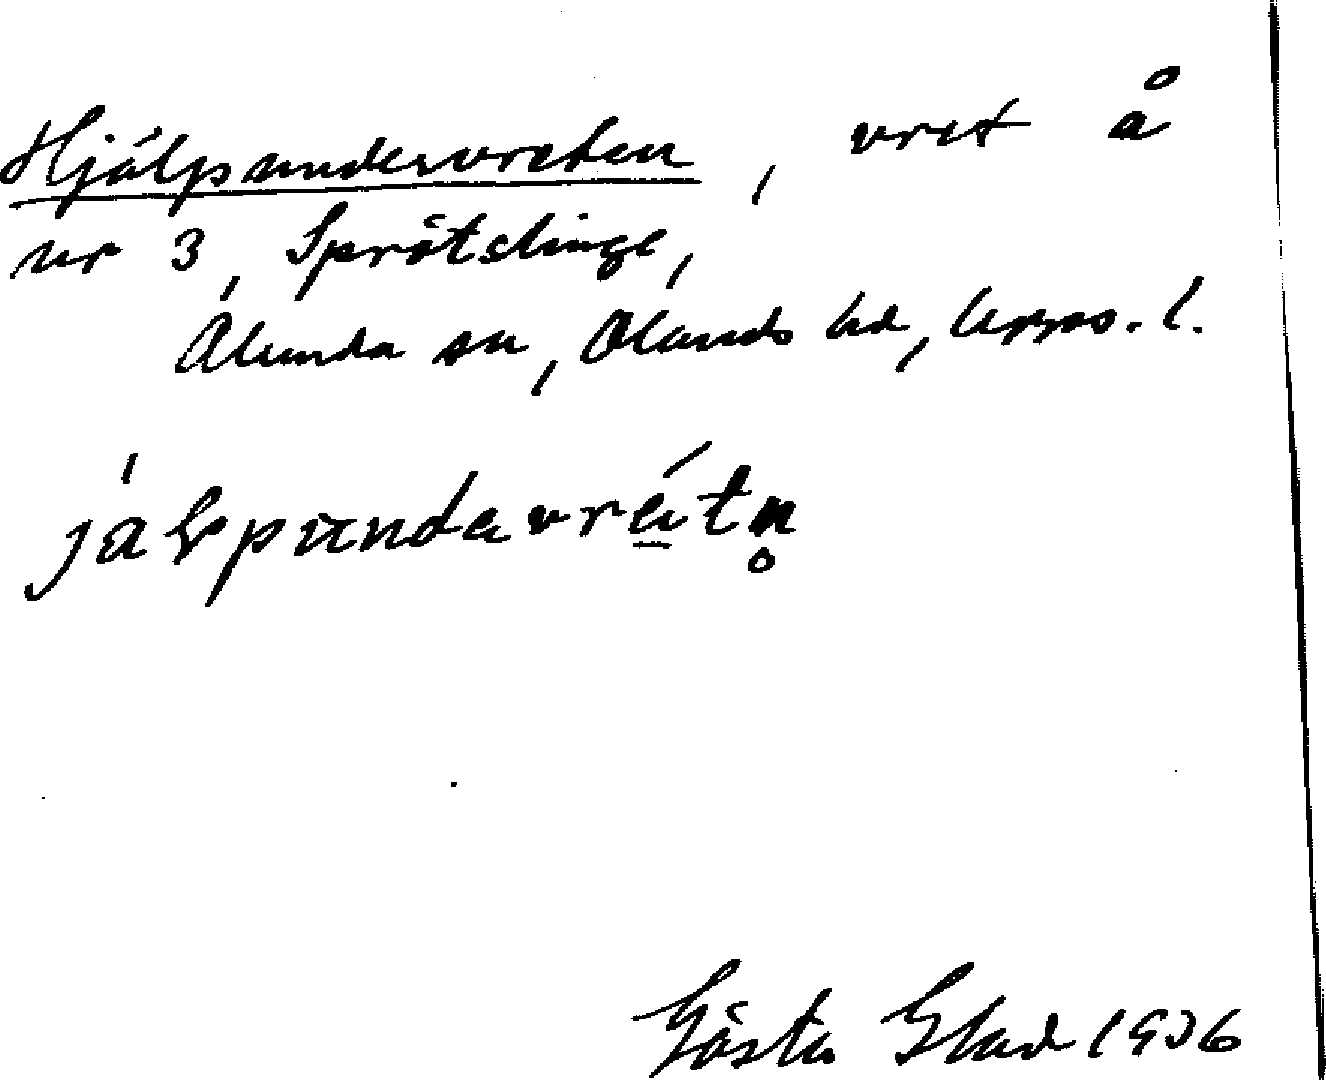 Hjälpundersvreten, vret å
nr 3, Sprötslinge,
Alunda sn, Olands hd, Upps. l.
jälpundavrétn̥
Gösta Glad 1936